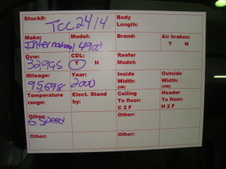 Stock#: TCC2414
Body Length:
Make: International 4900
Brand:
Air brakes: Y N
Gvw: 32995
CDL: Y N
Reefer Model:
Mileage: 95698
Year: 2000
Inside Width:
Outside Width:
Temperature range:
Elect. Stand by:
Ceiling To floor: C 2 F
Header To floor: H 2 F
Other: 6 Speed
Other:
Other:
Other: